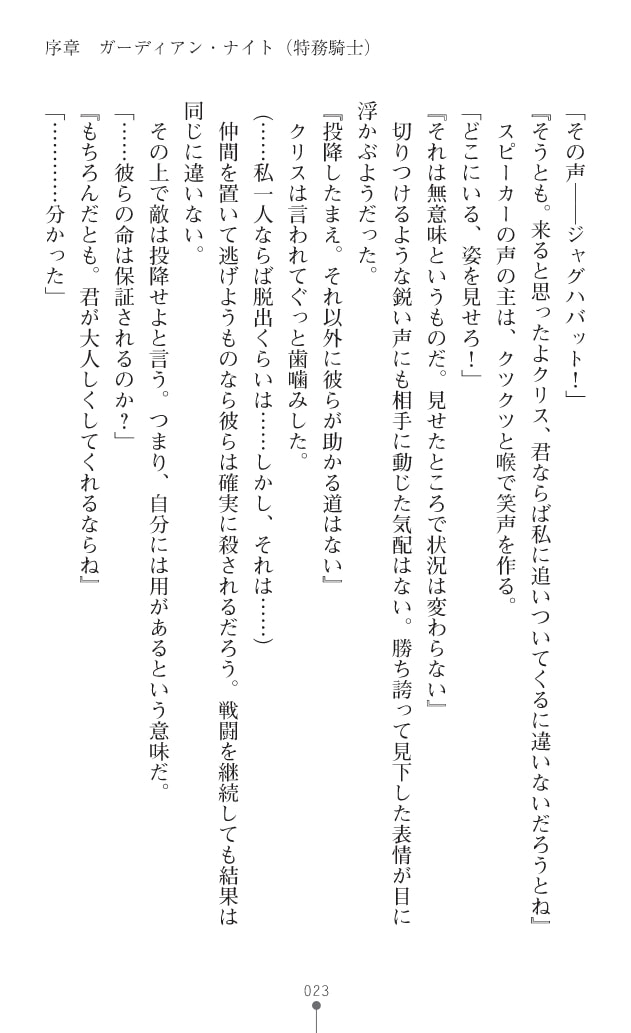 序章　ガーディアン・ナイト（特務騎士）
「その声――ジャグハバット！」
『そうとも。来ると思ったよクリス、君ならば私に追いついてくるに違いないだろうとね』
　スピーカーの声の主は、クツクツと喉で笑声を作る。
「どこにいる、姿を見せろ！」
『それは無意味というものだ。見せたところで状況は変わらない』
　切りつけるような鋭い声にも相手に動じた気配はない。勝ち誇って見下した表情が目に
浮かぶようだった。
『投降したまえ。それ以外に彼らが助かる道はない』
　クリスは言われてぐっと歯噛みした。
（……私一人ならば脱出くらいは……しかし、それは……）
　仲間を置いて逃げようものなら彼らは確実に殺されるだろう。戦闘を継続しても結果は
同じに違いない。
　その上で敵は投降せよと言う。つまり、自分には用があるという意味だ。
「……彼らの命は保証されるのか？」
『もちろんだとも。君が大人しくしてくれるならね』
「…………分かった」
023